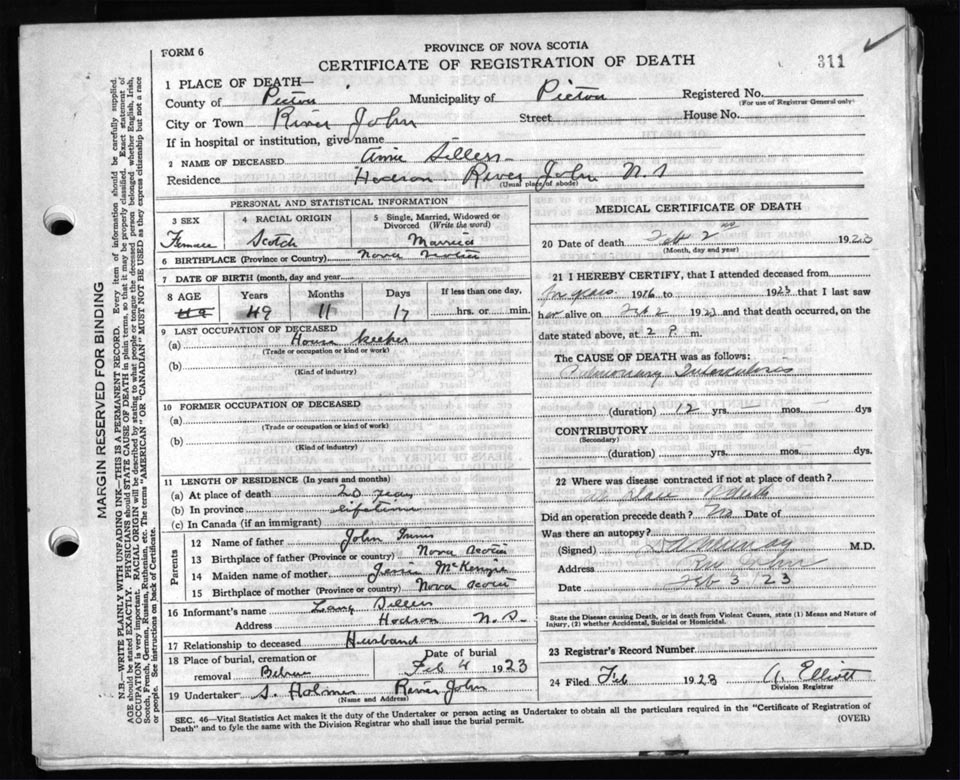 FORM 6
PROVINCE OF NOVA SCOTIA
CERTIFICATE OF REGISTRATION OF DEATH
311
1 PLACE OF DEATH—
County of Pictou Municipality of Pictou Registered No.
(For use of Registrar General only)
City or Town River John Street House No.
If in hospital or institution, give name
2 NAME OF DECEASED Annie Sellers
Residence Hodson River John N.S
(Usual place of abode)
PERSONAL AND STATISTICAL INFORMATION
3 SEX 4 RACIAL ORIGIN 5 Single, Married, Widowed or Divorced (Write the word)
Female Scotch Married
6 BIRTHPLACE (Province or Country) Nova Scotia
7 DATE OF BIRTH (month, day and year)
8 AGE Years Months Days If less than one day,
49 11 17 hrs. or min.
9 LAST OCCUPATION OF DECEASED
(a) House Keeper
(Trade or occupation or kind or work)
(b)
(Kind of industry)
10 FORMER OCCUPATION OF DECEASED
(a)
(Trade or occupation or kind of work)
(b)
(Kind of industry)
11 LENGTH OF RESIDENCE (In years and months)
(a) At place of death 20 years
(b) In province lifetime
(c) In Canada (if an immigrant)
Parents
12 Name of father John
13 Birthplace of father (Province or country) Nova Scotia
14 Maiden name of mother Jessie McKenzie
15 Birthplace of mother (Province or country) Nova Scotia
16 Informant's name Sellers
Address Hodson N.S.
17 Relationship to deceased Husband
18 Place of burial, cremation or removal Date of burial
Feb 4 1923
19 Undertaker S. Holmes River John
(Name and Address)
MEDICAL CERTIFICATE OF DEATH
20 Date of death Feb 2nd 1923
(Month, day and year)
21 I HEREBY CERTIFY, that I attended deceased from
1916 to 1923 that I last saw
her alive on Feb 2 1923 and that death occurred, on the
date stated above, at 2 P. m.
The CAUSE OF DEATH was as follows:
Pulmonary Tuberculosis
(duration) 12 yrs. mos. dys
CONTRIBUTORY
(Secondary)
(duration) yrs. mos. dys.
22 Where was disease contracted if not at place of death?
at place of death
Did an operation precede death? No Date of
Was there an autopsy?
(Signed) Murray M.D.
Address River John
Date Feb 3 23
State the Disease causing Death, or in death from Violent Causes, state (1) Means and Nature of
Injury, (2) whether Accidental, Suicidal or Homicidal.
23 Registrar's Record Number
24 Filed Feb 1923 A. Elliott
Division Registrar
SEC. 46—Vital Statistics Act makes it the duty of the Undertaker or person acting as Undertaker to obtain all the particulars required in the "Certificate of Registration of
Death" and to fyle the same with the Division Registrar who shall issue the burial permit.
(OVER)
MARGIN RESERVED FOR BINDING
N.B.—WRITE PLAINLY WITH UNFADING INK—THIS IS A PERMANENT RECORD. Every item of information should be carefully supplied.
AGE should be stated EXACTLY. PHYSICIANS should STATE CAUSE OF DEATH in plain terms, so that it may be properly classified. Exact statement of
OCCUPATION is very important. RACIAL ORIGIN will be described by stating to what people or tongue the deceased person belonged whether English, Irish,
Scotch, French, German, Russian, Ruthenian, etc. The terms "AMERICAN" OR "CANADIAN" MUST NOT BE USED as they express citizenship but not a race
or people. See instructions on back of Certificate.